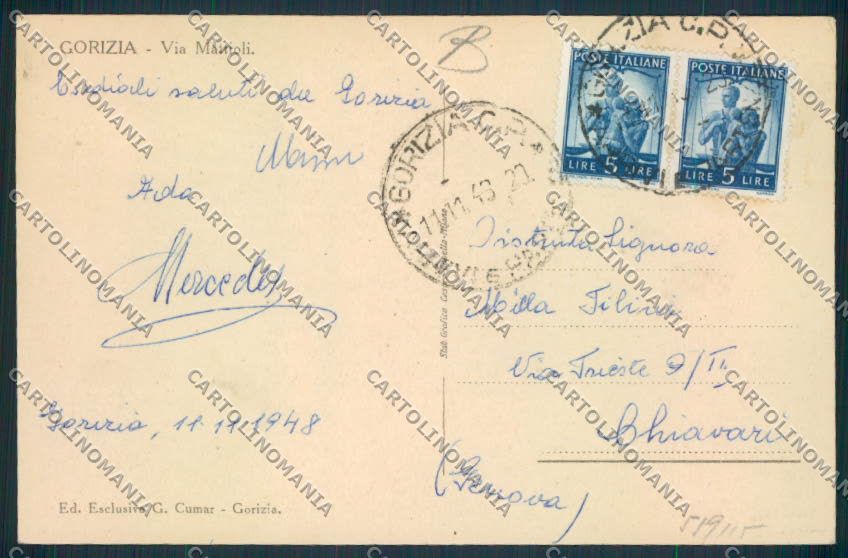 GORIZIA - Via
Cordiali saluti da Gorizia
Ada
Mercedes
Gorizia, 11.11.1948
Ed. Esclusiva G. Cumar - Gorizia.
GORIZIA C.P.
11.11.48 20
POSTE ITALIANE
LIRE 5 LIRE
POSTE ITALIANE
LIRE 5 LIRE
Distinta Signora
Milla
Via Trieste 9/II
Chiavari
(Genova)
B
CARTOLINOMANIA